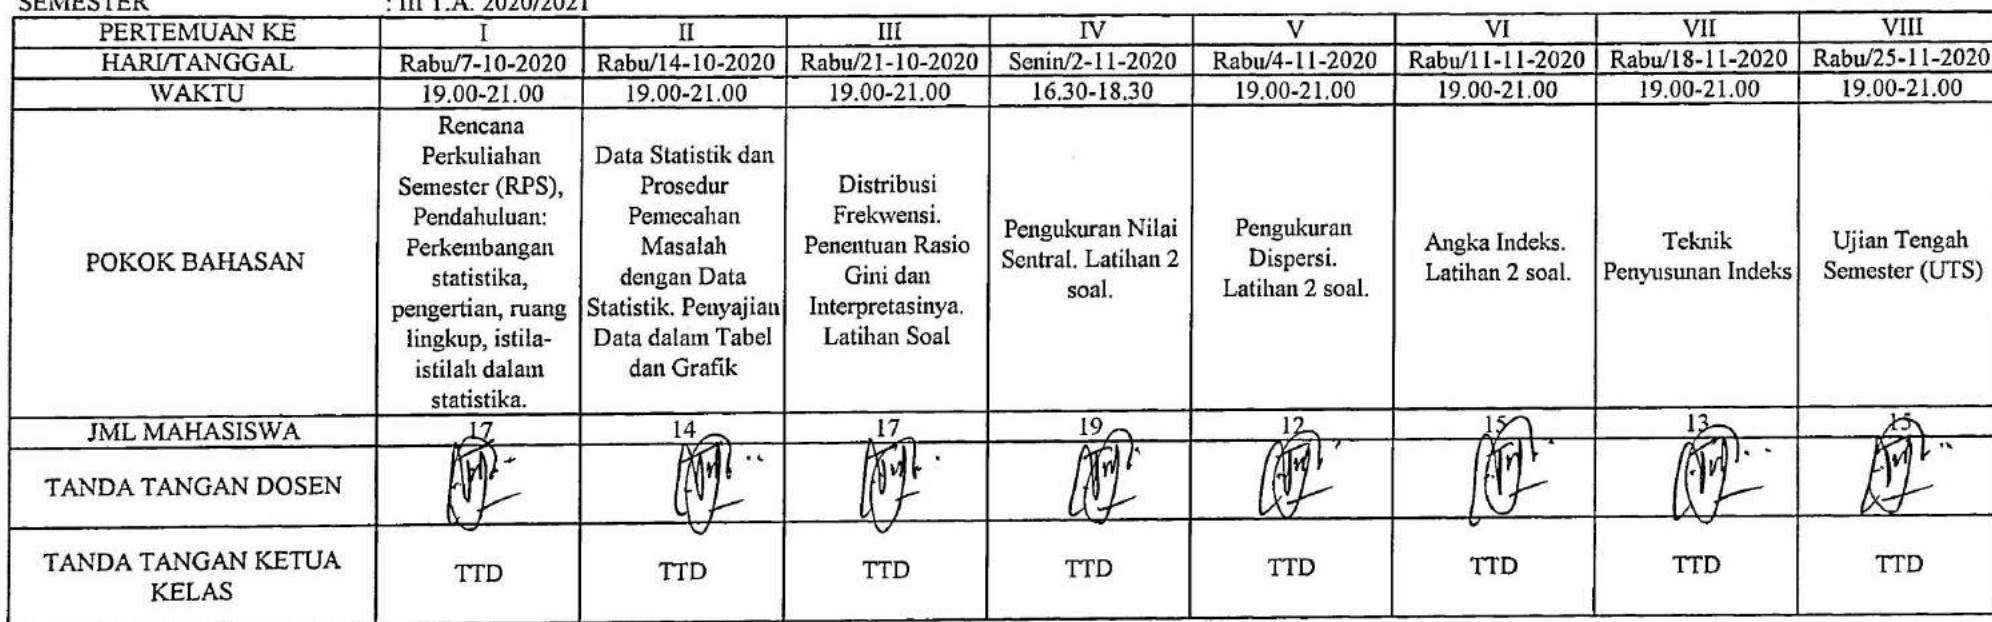 SEMESTER : III T.A. 2020/2021
PERTEMUAN KE I II III IV V VI VII VIII
HARI/TANGGAL Rabu/7-10-2020 Rabu/14-10-2020 Rabu/21-10-2020 Senin/2-11-2020 Rabu/4-11-2020 Rabu/11-11-2020 Rabu/18-11-2020 Rabu/25-11-2020
WAKTU 19.00-21.00 19.00-21.00 19.00-21.00 16.30-18.30 19.00-21.00 19.00-21.00 19.00-21.00 19.00-21.00
POKOK BAHASAN
Rencana
Perkuliahan
Semester (RPS),
Pendahuluan:
Perkembangan
statistika,
pengertian, ruang
lingkup, istila-
istilah dalam
statistika.
Data Statistik dan
Prosedur
Pemecahan
Masalah
dengan Data
Statistik. Penyajian
Data dalam Tabel
dan Grafik
Distribusi
Frekwensi.
Penentuan Rasio
Gini dan
Interpretasinya.
Latihan Soal
Pengukuran Nilai
Sentral. Latihan 2
soal.
Pengukuran
Dispersi.
Latihan 2 soal.
Angka Indeks.
Latihan 2 soal.
Teknik
Penyusunan Indeks
Ujian Tengah
Semester (UTS)
JML MAHASISWA 17 14 17 19 12 15 13 15
TANDA TANGAN DOSEN
TANDA TANGAN KETUA
KELAS
TTD TTD TTD TTD TTD TTD TTD TTD